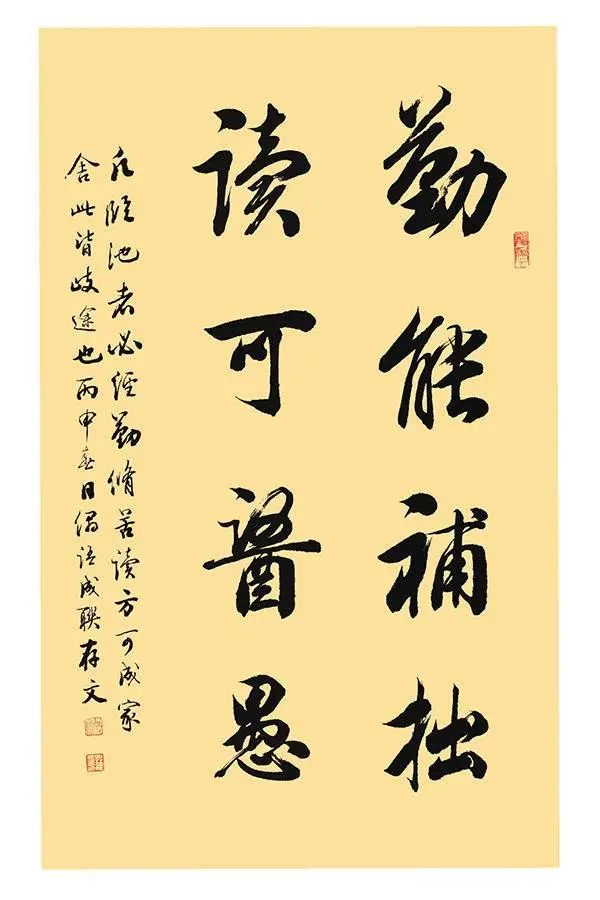 勤能補拙
读可醫愚
凡临池者必经勤脩苦读方可成家
舍此皆歧途也丙申春日偶语成联存文